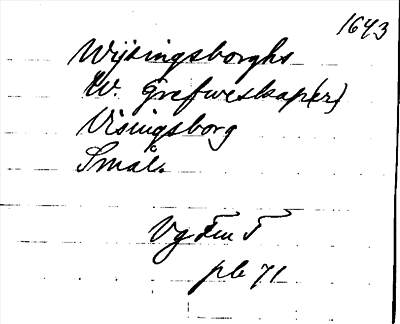 1643
Wijsingsborghs
W. Grefweskap(er)
Visingsborg
Smål.
Vg Fm F
pb 71